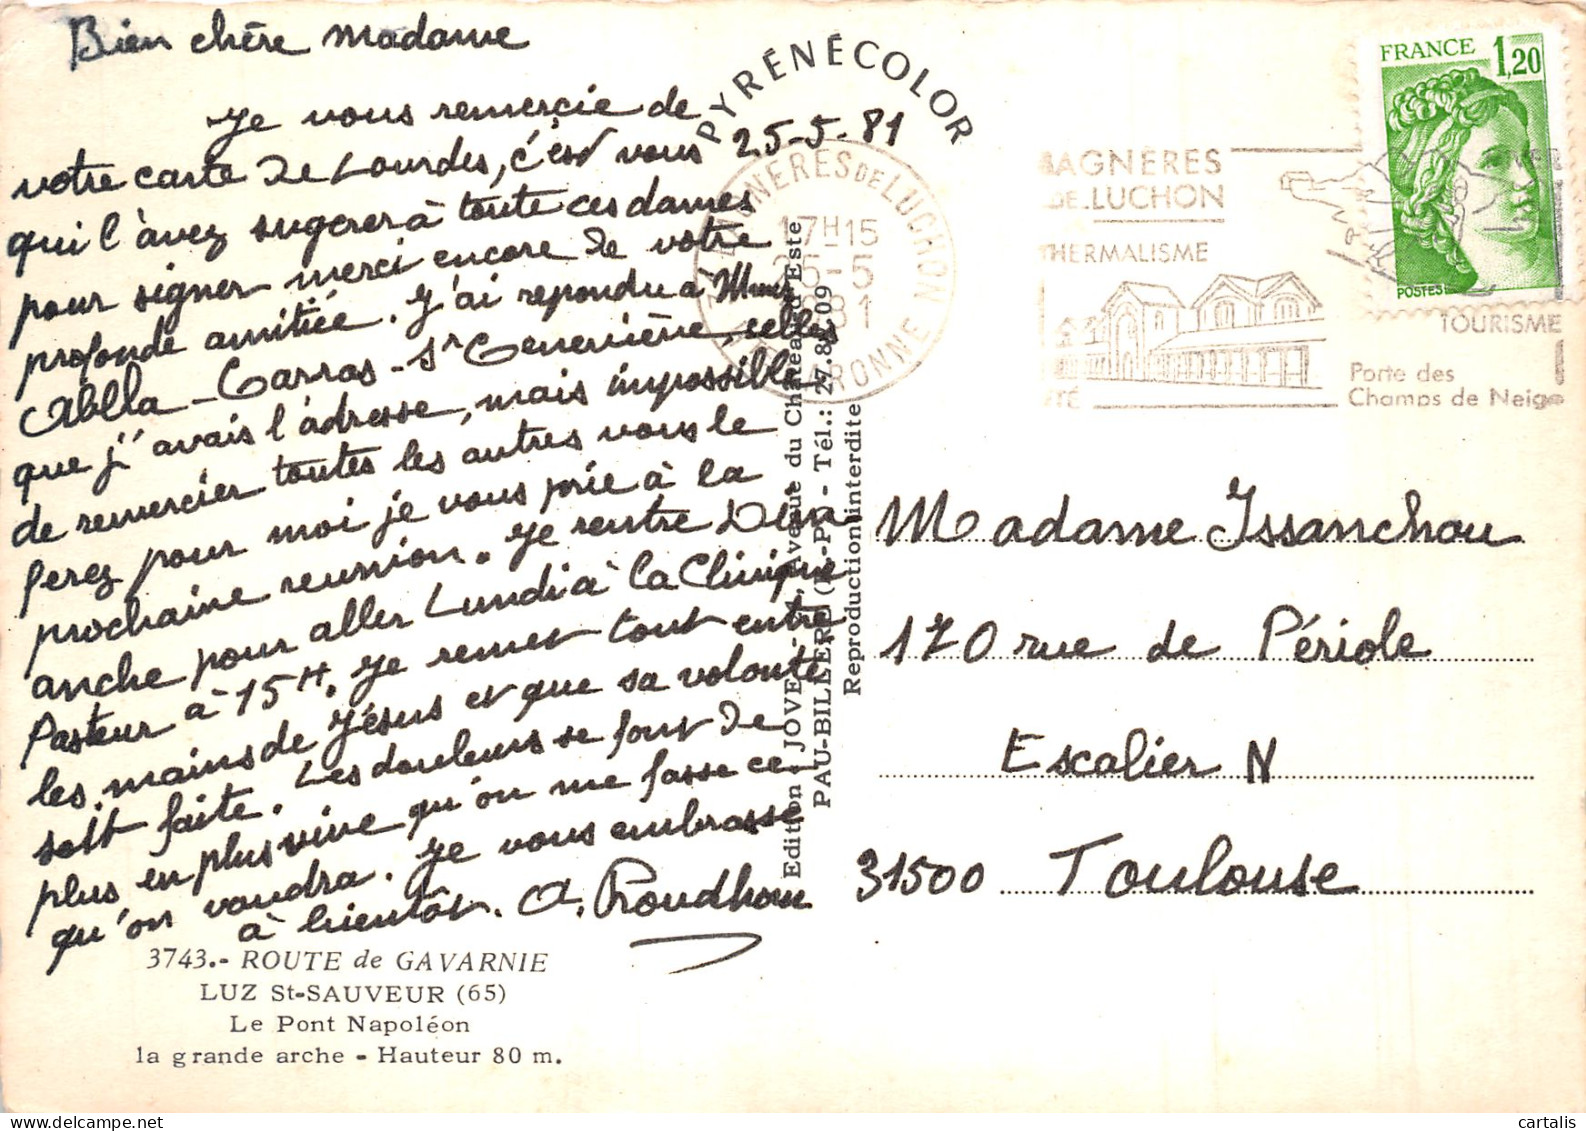 Bien chère madame
25-5-81
Je vous remercie de
votre carte de Lourdes, c'est vous
qui l'avez sugerer à toute ces dames
pour signer merci encore de votre
profonde amitiée. J'ai repondu à Mmes
Ablla - Garros - St Geneviève, celles
que j'avais l'adresse, mais impossible
de remercier toutes les autres vous le
ferez pour moi je vous prie à la
prochaine reunion. Je rentre Dim
anche pour aller Lundi à la Clinique
Pasteur à 15H. Je remet tout entre
les mains de Jésus et que sa volonté
soit faite. Les douleurs se font de
plus en plus vive qu'on me fasse ce
qu'on voudra. Je vous embrasse
à bientôt. A. Proudhom
3743.- ROUTE de GAVARNIE
LUZ St-SAUVEUR (65)
Le Pont Napoléon
la grande arche - Hauteur 80 m.
PYRÉNÉCOLOR
Edition JOVE - , Avenue du Château d'Este
PAU-BILLÈRE (B.-P.) - Tél.: 27.8 .09
Reproduction interdite
BAGNERES DE LUCHON
17H15
25-5
81
GARONNE
BAGNÈRES
DE LUCHON
THERMALISME
ÉTÉ
TOURISME
Porte des
Champs de Neige
FRANCE 1,20
POSTES
Madame Issanchou
170 rue de Périole
Escalier N
31500 Toulouse
cartalis